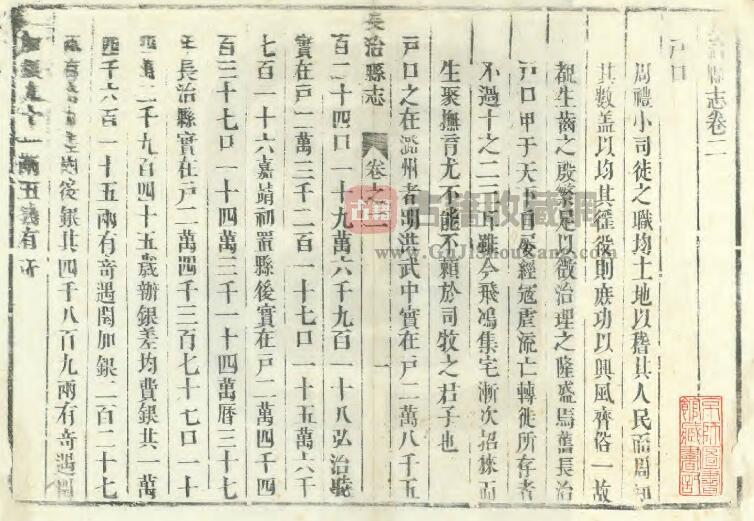 治縣志卷二
戶口
周禮小司徒之職均土地以稽其人民而周知
其數蓋以均其徭役則庶功以興風齊俗一故
觀生齒之殷繁足以徵治理之隆盛焉舊長治
戶口甲于天下自屢經寇虐流亡轉徙所存者
不過十之二三耳雖今飛鴻集宅漸次招徠而
生聚撫育尤不能不賴於司牧之君子也
戶口之在潞州者明洪武中實在戶二萬八千五
長治縣志 卷之二 一
百一十四口一十九萬六千九百一十八弘治
實在戶二萬三千二百一十七口一十五萬六千
七百一十六嘉靖初置縣後實在戶二萬四千四
百三十七口一十四萬三千一十四萬曆三十七
年長治縣實在戶二萬四千三百七十七口一十
四萬二千九百四十五歲辦銀差均費銀共 萬
四千六百一十五兩有奇遇閏加銀二百二十七
後銀共四千八百九兩有奇遇閏
加銀 十一兩五錢有奇
古籍
古籍收藏网
www.GuJiShouCang.com
京師圖書
館藏書記